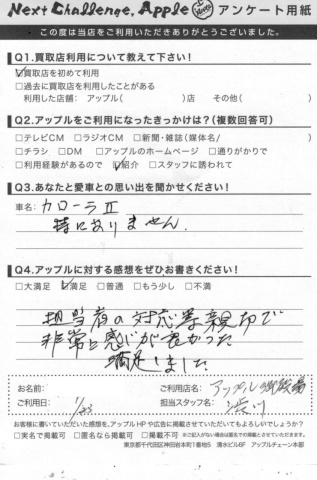 Next Challenge, Apple アンケート用紙
この度は当店をご利用いただきありがとうございました。
Q1.買取店利用について教えて下さい!
☑買取店を初めて利用
□過去に買取店を利用したことがある
利用した店舗: アップル( )店 その他( )
Q2.アップルをご利用になったきっかけは?(複数回答可)
□テレビCM □ラジオCM □新聞・雑誌(媒体名/ )
□チラシ □DM □アップルのホームページ □通りがかりで
□利用経験があるので ☑紹介 □スタッフに誘われて
Q3.あなたと愛車との思い出を聞かせください!
車名: カローラⅡ
特にありません.
Q4.アップルに対する感想をぜひお書きください!
□大満足 ☑満足 □普通 □もう少し □不満
担当者の対応等親切で
非常に感じが良かった
満足しました
お名前: ご利用店名: アップル
ご利用日: 1/23 担当スタッフ名: 渋川
お客様に書いていただいた感想を、アップルHPや広告に掲載させていただいてもよろしいでしょうか?
□実名で掲載可 □匿名なら掲載可 □掲載不可 ※ご記入がない場合は匿名での掲載とさせていただきます。
東京都千代田区神田岩本町1番地5 清水ビル6F アップルチェーン本部